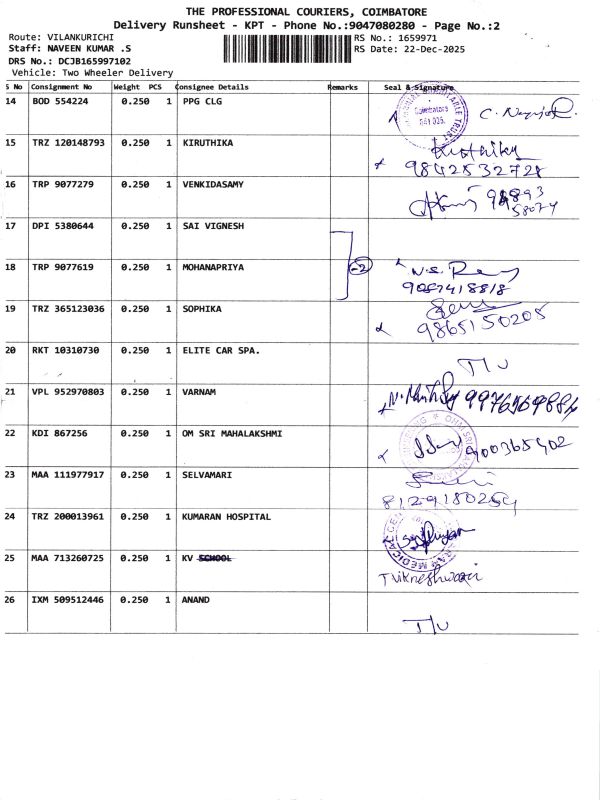 THE PROFESSIONAL COURIERS, COIMBATORE
Delivery Runsheet - KPT - Phone No.:9047080280 - Page No.:2
Route: VILANKURICHI RS No.: 1659971
Staff: NAVEEN KUMAR .S RS Date: 22-Dec-2025
DRS No.: DCJB165997102
Vehicle: Two Wheeler Delivery
S No Consignment No Weight PCS Consignee Details Remarks Seal & Signature
14 BOD 554224 0.250 1 PPG CLG
Coimbatore
641 035.
15 TRZ 120148793 0.250 1 KIRUTHIKA
9842532728
16 TRP 9077279 0.250 1 VENKIDASAMY
58074
17 DPI 5380644 0.250 1 SAI VIGNESH
18 TRP 9077619 0.250 1 MOHANAPRIYA
9087418818
19 TRZ 365123036 0.250 1 SOPHIKA
9865150205
20 RKT 10310730 0.250 1 ELITE CAR SPA.
T/U
21 VPL 952970803 0.250 1 VARNAM
22 KDI 867256 0.250 1 OM SRI MAHALAKSHMI
23 MAA 111977917 0.250 1 SELVAMARI
8129180254
24 TRZ 200013961 0.250 1 KUMARAN HOSPITAL
25 MAA 713260725 0.250 1 KV SCHOOL
26 IXM 509512446 0.250 1 ANAND
T/U